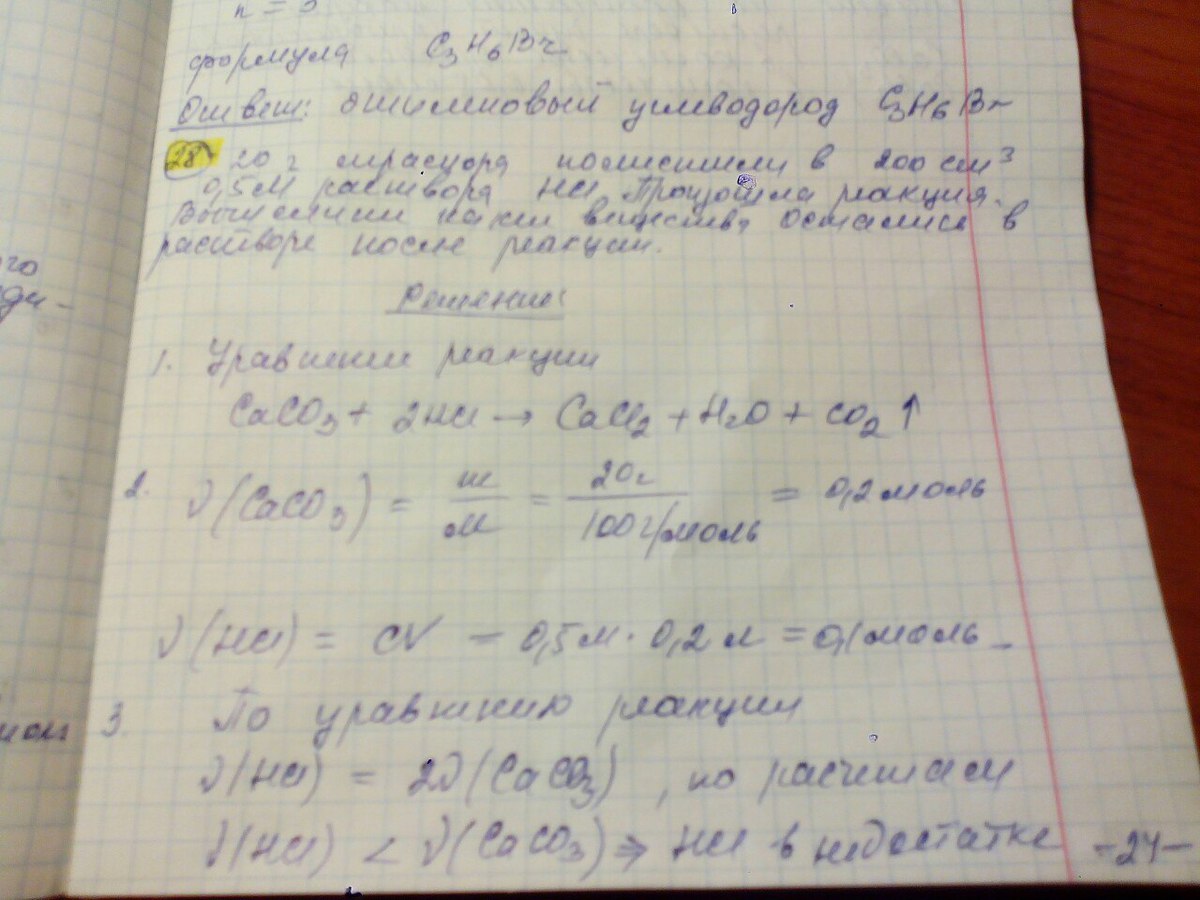 n = 3
формула C₃H₆Br
Ответ: этиленовый углеводород C₃H₆Br
28 20 г мрамора поместили в 200 см³
0,5М раствора HCl. Произошла реакция.
Вычислили какие вещества остались в
растворе после реакции.
Решение:
1. Уравнение реакции
CaCO₃ + 2HCl → CaCl₂ + H₂O + CO₂↑
2. ν(CaCO₃) = m/M = 20г/100г/моль = 0,2 моль
ν(HCl) = CV = 0,5м · 0,2 л = 0,1моль
3. По уравнению реакции
ν(HCl) = 2ν(CaCO₃), по расчетам
ν(HCl) < ν(CaCO₃) ⇒ HCl в недостатке
-24-